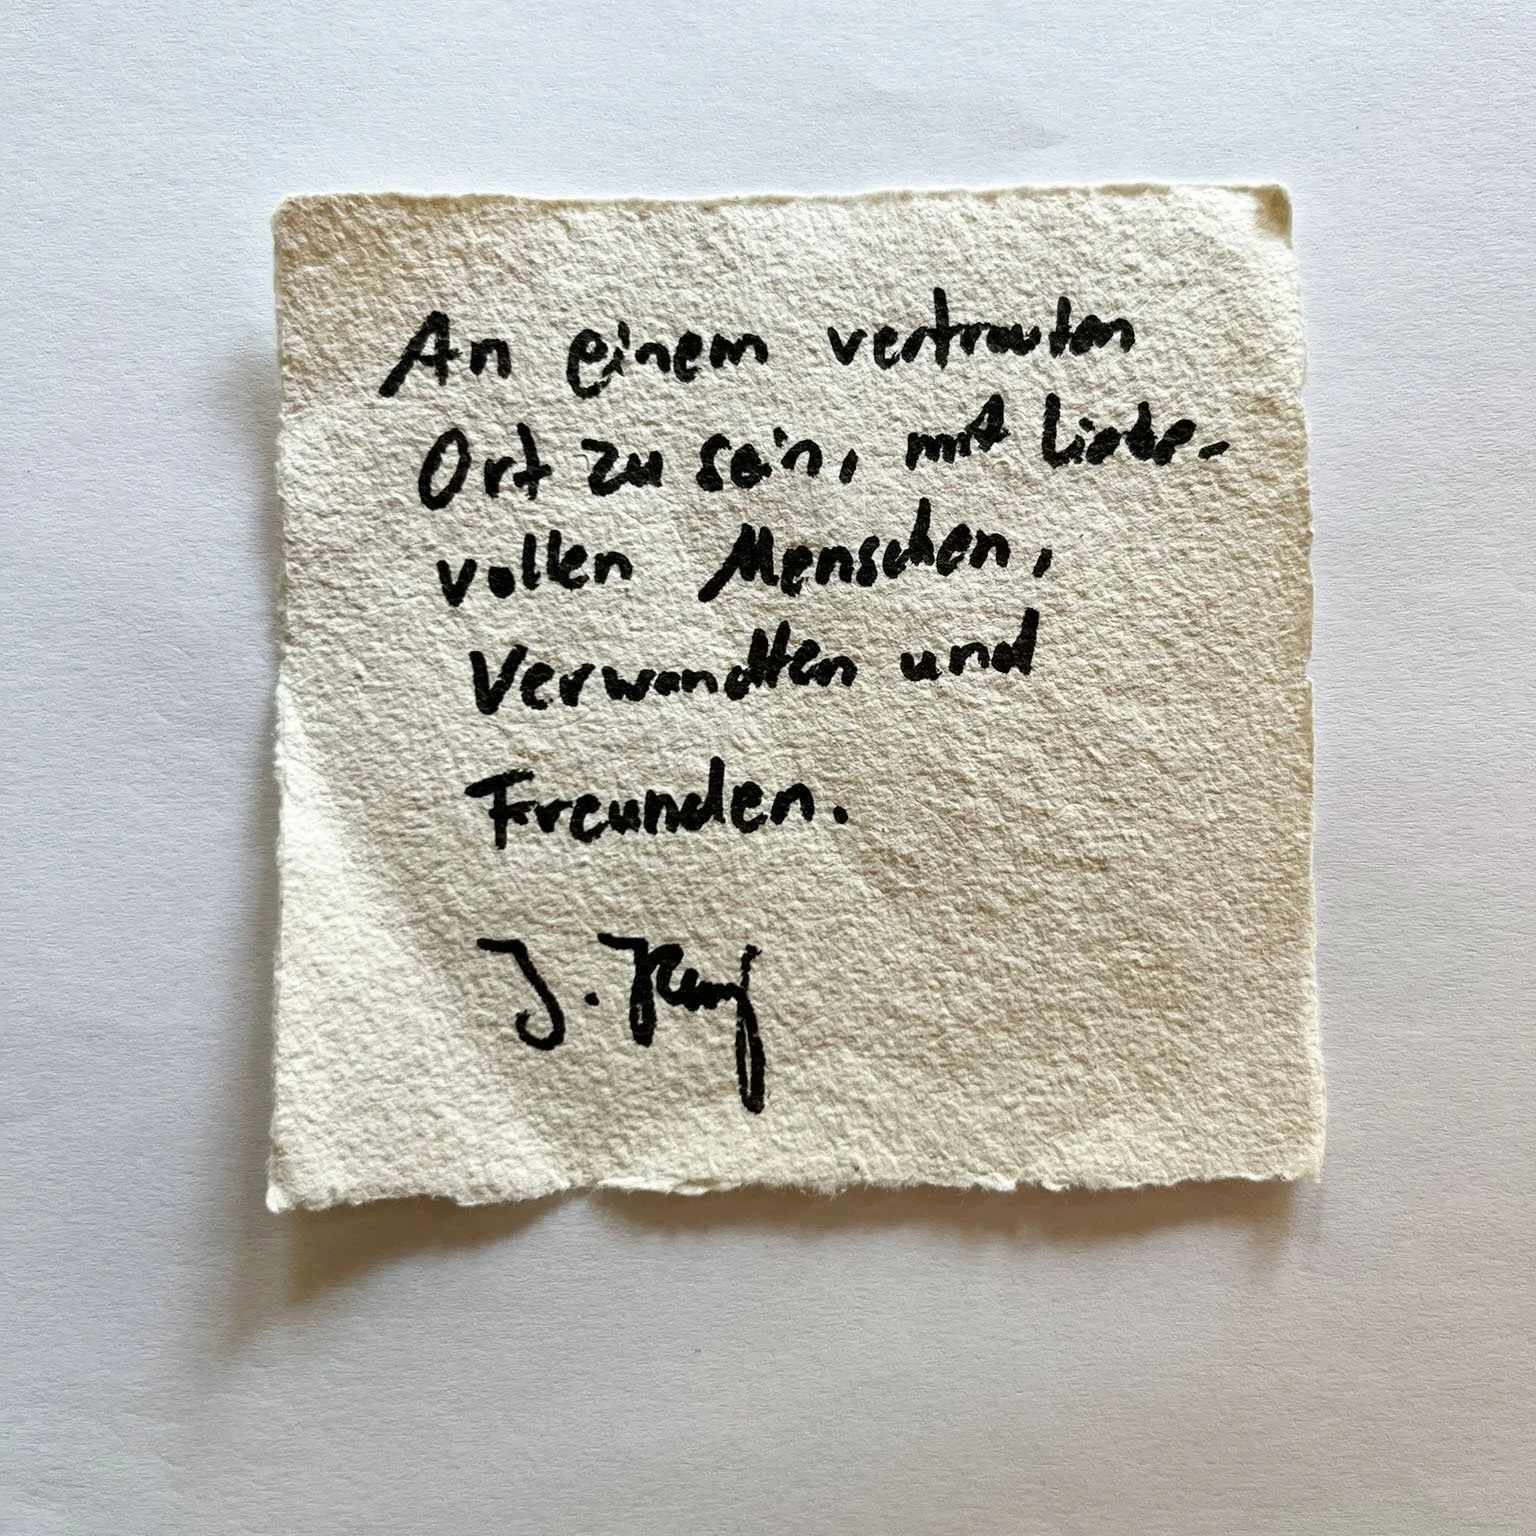 An einem vertrauten
Ort zu sein, mit liebe-
vollen Menschen,
Verwandten und
Freunden.
J.